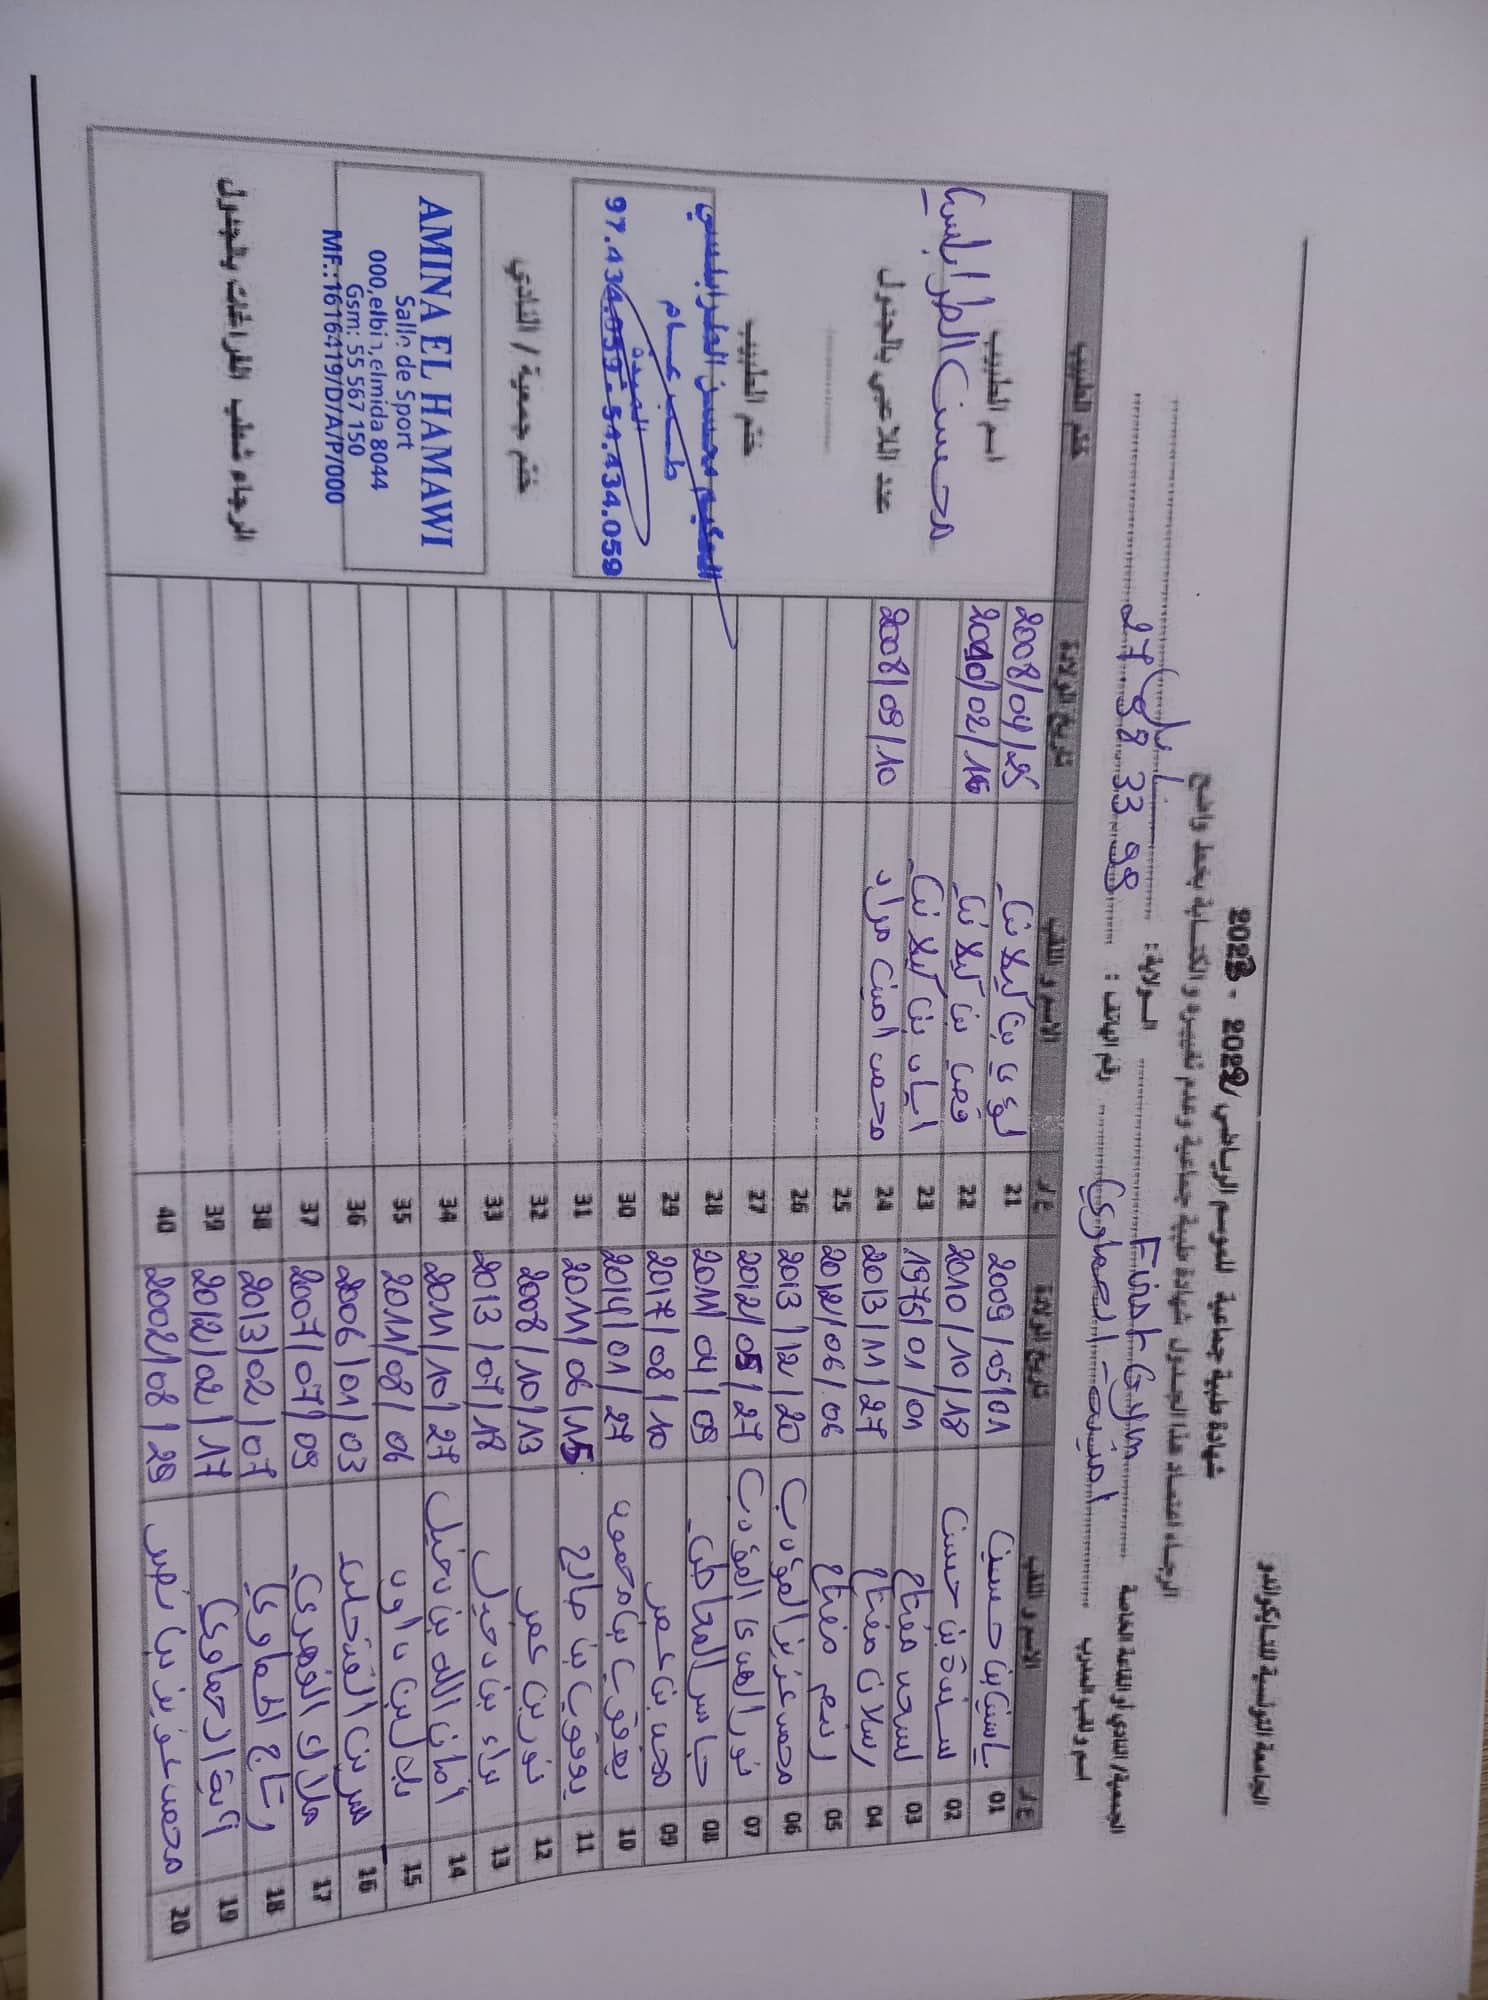 الجامعة التونسية للتايكواندو
شهادة طبية جماعية للموسم الرياضي 2022 - 2023
الرجاء اعتماد هذا الجدول شهادة طبية جماعية وعدم تغييره و الكتابة بخط واضح
الجمعية/ النادي أو القاعة الخاصة First Gym الولاية: نابل
اسم و لقب المدرب امينة الحماوي رقم الهاتف : 27 98 33 98
ع/ر الاسم و اللقب تاريخ الولادة ع/ر الاسم و اللقب تاريخ الولادة ختم الطبيب
01 ياسين بن حسين 2009/05/01 21 لؤي بن كيلاني 2008/04/25
02 بن حسين 2010/10/18 22 بن كيلاني 02/16
03 مفتاح 1975/01/01 23 بن كيلاني
04 رسلان مفتاح 2013/11/27 24 محمد امين مراد 2008/09/10
05 مفتاح 2012/06/06 25
06 محمد عزيز المؤدب 2013/12/20 26
07 نور الهدى المؤدب 2012/05/27 27
08 2011/04/09 28
09 محمد بن عمر 2017/08/10 29
10 يعقوب بن محمود 2014/01/27 30
11 يعقوب بن صالح 2011/06/15 31
12 نورين عمر 2008/10/13 32
13 براء بن دخيل 2013/07/18 33
14 أمان الله بن دخيل 2011/10/27 34
15 2011/08/06 35
16 سيرين 2006/01/03 36
17 ملاك 2007/07/09 37
18 رتاج الحماوي 2013/02/07 38
19 آية الحماوي 2012/02/17 39
20 محمد عزيز بن نصر 2002/08/29 40
اسم الطبيب
محسن الطرابلسي
عدد اللاعبي بالجدول
ختم الطبيب
الحكيم محسن الطرابلسي
طب عام
الميدة
97.434.059 - 54.434.059
ختم جمعية / النادي
AMINA EL HAMAWI
Salle de Sport
000,elbi ,elmida 8044
Gsm: 55 567 150
MF.:1616419/D/A/P/000
الرجاء شطب الفراغات بالجدول